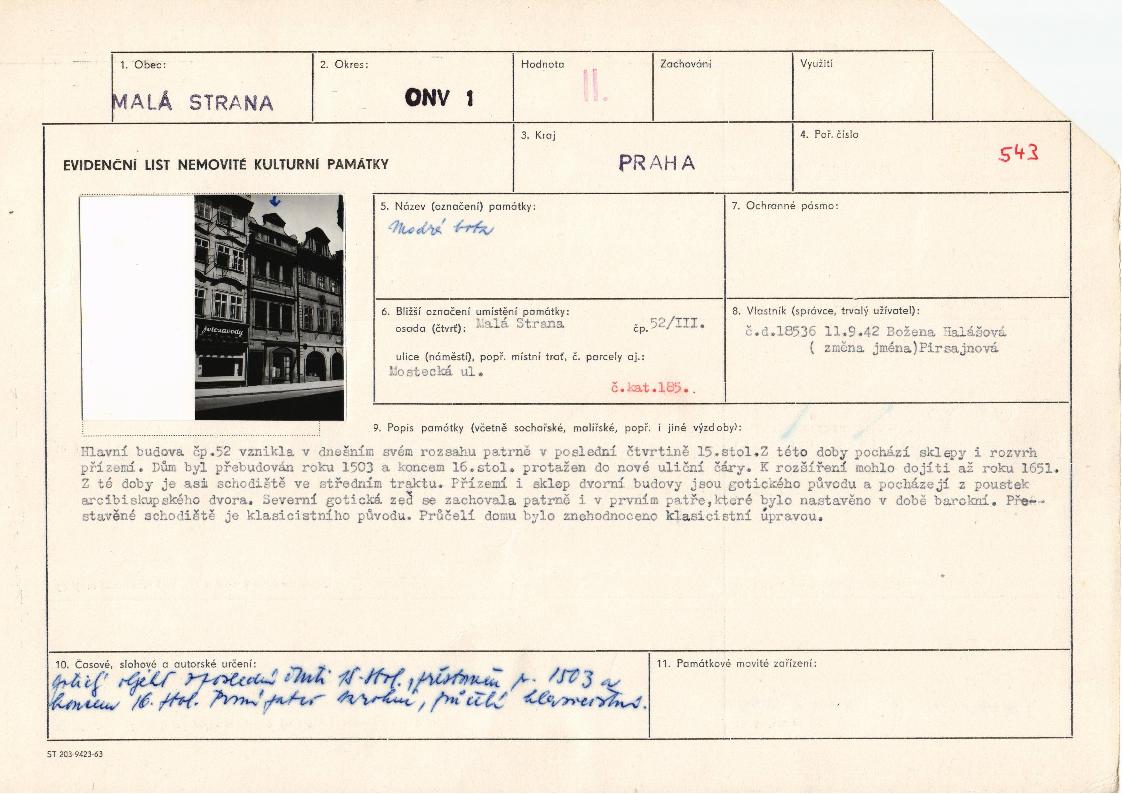 1. Obec:
MALÁ STRANA
2. Okres:
ONV 1
Hodnota
II.
Zachování
Využití
EVIDENČNÍ LIST NEMOVITÉ KULTURNÍ PAMÁTKY
3. Kraj
PRAHA
4. Poř. číslo
543
5. Název (označení) památky:
Modrá bota
7. Ochranné pásmo:
6. Bližší označení umístění památky:
osada (čtvrť): Malá Strana čp. 52/III.
ulice (náměstí), popř. místní trať, č. parcely aj.:
Mostecká ul.
č.kat.185..
8. Vlastník (správce, trvalý uživatel):
č.d.18536 11.9.42 Božena Halášová
( změna jména)Pirsajnová
9. Popis památky (včetně sochařské, malířské, popř. i jiné výzdoby):
Hlavní budova čp.52 vznikla v dnešním svém rozsahu patrně v poslední čtvrtině 15.stol.Z této doby pochází sklepy i rozvrh
přízemí. Dům byl přebudován roku 1503 a koncem 16.stol. protažen do nové uliční čáry. K rozšíření mohlo dojíti až roku 1651.
Z té doby je asi schodiště ve středním traktu. Přízemí i sklep dvorní budovy jsou gotického původu a pocházejí z poustek
arcibiskupského dvora. Severní gotická zeď se zachovala patrně i v prvním patře,které bylo nastavěno v době barokní. Pře-
stavěné schodiště je klasicistního původu. Průčelí domu bylo znehodnoceno klasicistní úpravou.
10. Časové, slohové a autorské určení:
gotický objekt z poslední čtvrti 15. stol., přestavěn r. 1503 a
koncem 16. stol. První patro barokní, průčelí klasicistní.
11. Památkové movité zařízení:
ST 203-9423-63